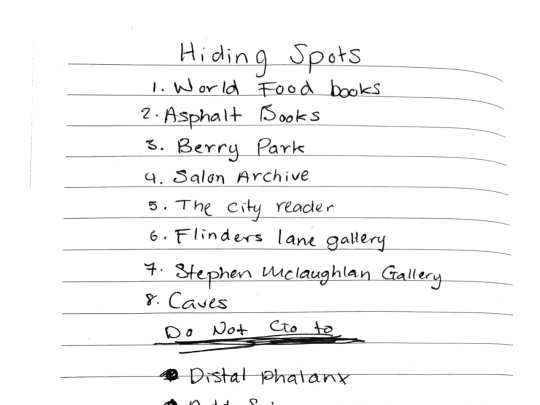 Hiding Spots
1. World Food books
2. Asphalt Books
3. Berry Park
4. Salon Archive
5. The city reader
6. Flinders lane gallery
7. Stephen Mclaughlan Gallery
8. Caves
Do Not Go to
Distal phalanx